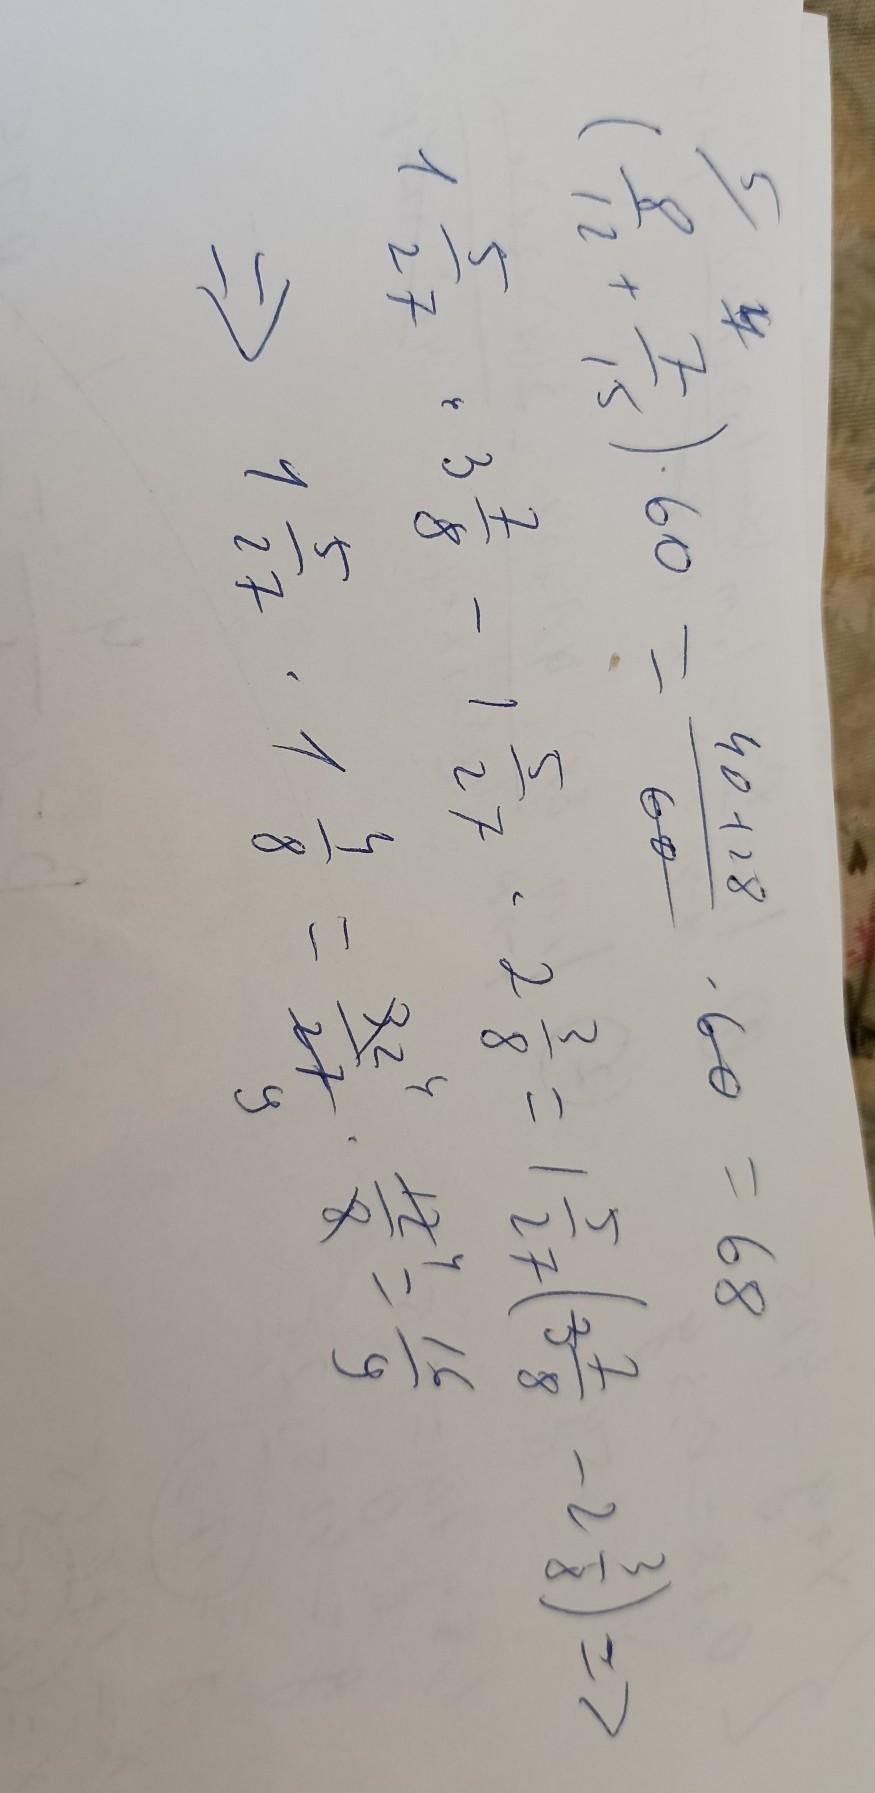 5 4
(8/12 + 7/15) · 60 = (40+28)/60 · 60 = 68
1 5/27 · 3 7/8 - 1 5/27 · 2 3/8 = 1 5/27 (3 7/8 - 2 3/8) =>
=> 1 5/27 · 1 4/8 = 32/27 · 12/8 = 16/9